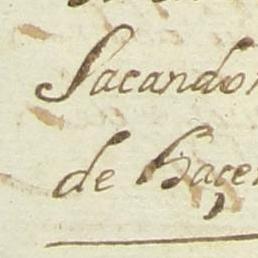 Sacando
de Haçe